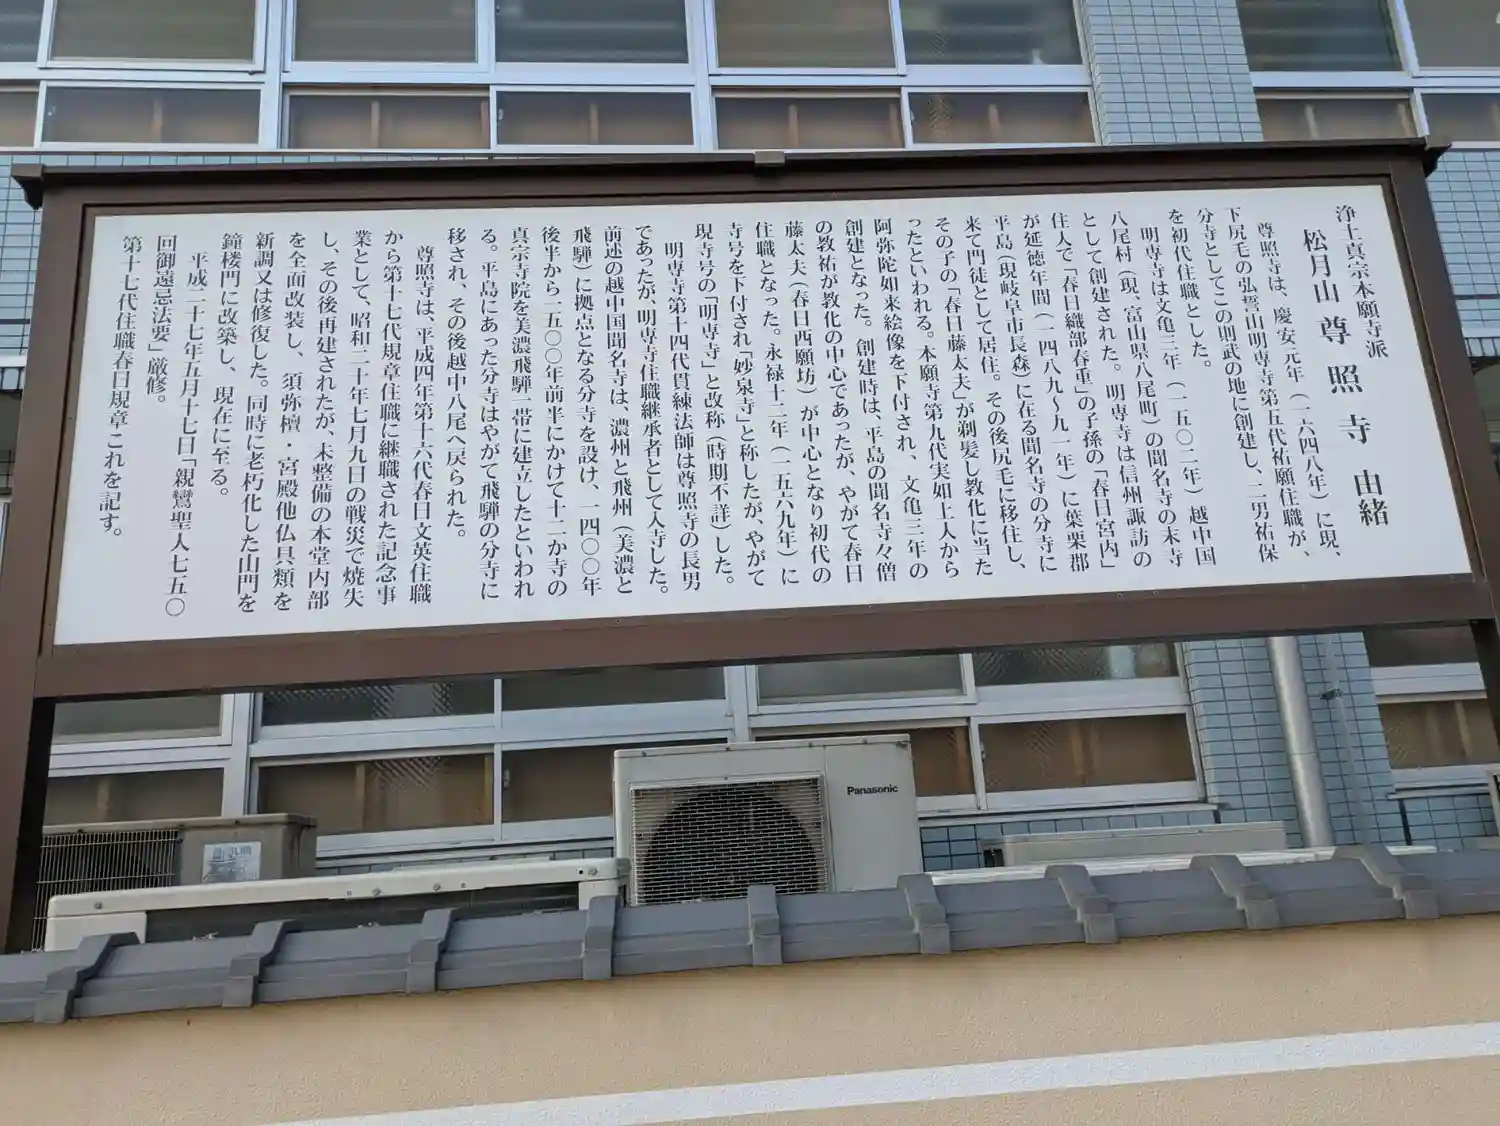 浄土真宗本願寺派
松月山 尊照寺 由緒
尊照寺は、慶安元年（一六四八年）に現、
下尻毛の弘誓山明専寺第五代祐願住職が、
分寺としてこの則武の地に創建し、二男祐保
を初代住職とした。
明専寺は文亀三年（一五〇二年）越中国
八尾村（現、富山県八尾町）の聞名寺の末寺
として創建された。明専寺は信州諏訪の
住人で「春日織部春重」の子孫の「春日宮内」
が延徳年間（一四八九〜九一年）に葉栗郡
平島（現岐阜市長森）に在る聞名寺の分寺に
来て門徒として居住。その後尻毛に移住し、
その子の「春日藤太夫」が剃髪し教化に当た
ったといわれる。本願寺第九代実如上人から
阿弥陀如来絵像を下付され、文亀三年の
創建となった。創建時は、平島の聞名寺々僧
の教祐が教化の中心であったが、やがて春日
藤太夫（春日西願坊）が中心となり初代の
住職となった。永禄十二年（一五六九年）に
寺号を下付され「妙泉寺」と称したが、やがて
現寺号の「明専寺」と改称（時期不詳）した。
明専寺第十四代貫練法師は尊照寺の長男
であったが、明専寺住職継承者として入寺した。
前述の越中国聞名寺は、濃州と飛州（美濃と
飛騨）に拠点となる分寺を設け、一四〇〇年
後半から一五〇〇年前半にかけて十二か寺の
真宗寺院を美濃飛騨一帯に建立したといわれ
る。平島にあった分寺はやがて飛騨の分寺に
移され、その後越中八尾へ戻られた。
尊照寺は、平成四年第十六代春日文英住職
から第十七代規章住職に継職された記念事
業として、昭和二十年七月九日の戦災で焼失
し、その後再建されたが、未整備の本堂内部
を全面改装し、須弥壇・宮殿他仏具類を
新調又は修復した。同時に老朽化した山門を
鐘楼門に改築し、現在に至る。
平成二十七年五月十七日「親鸞聖人七五〇
回御遠忌法要」厳修。
第十七代住職春日規章これを記す。
Panasonic